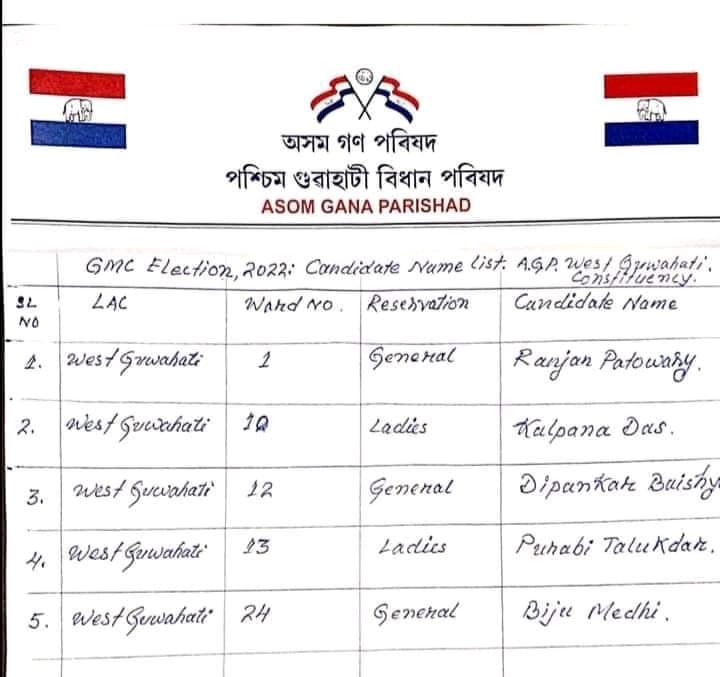 অসম গণ পৰিষদ
পশ্চিম গুৱাহাটী বিধান পৰিষদ
ASOM GANA PARISHAD
GMC Election, 2022: Candidate Name list. A.G.P. West Guwahati. Constituency.
SL NO LAC Ward No. Reservation Candidate Name
1. West Guwahati 1 General Ranjan Patowary.
2. West Guwahati 10 Ladies Kalpana Das.
3. West Guwahati 12 General Dipankar Baishy
4. West Guwahati 13 Ladies Purabi Talukdar.
5. West Guwahati 24 General Biju Medhi.